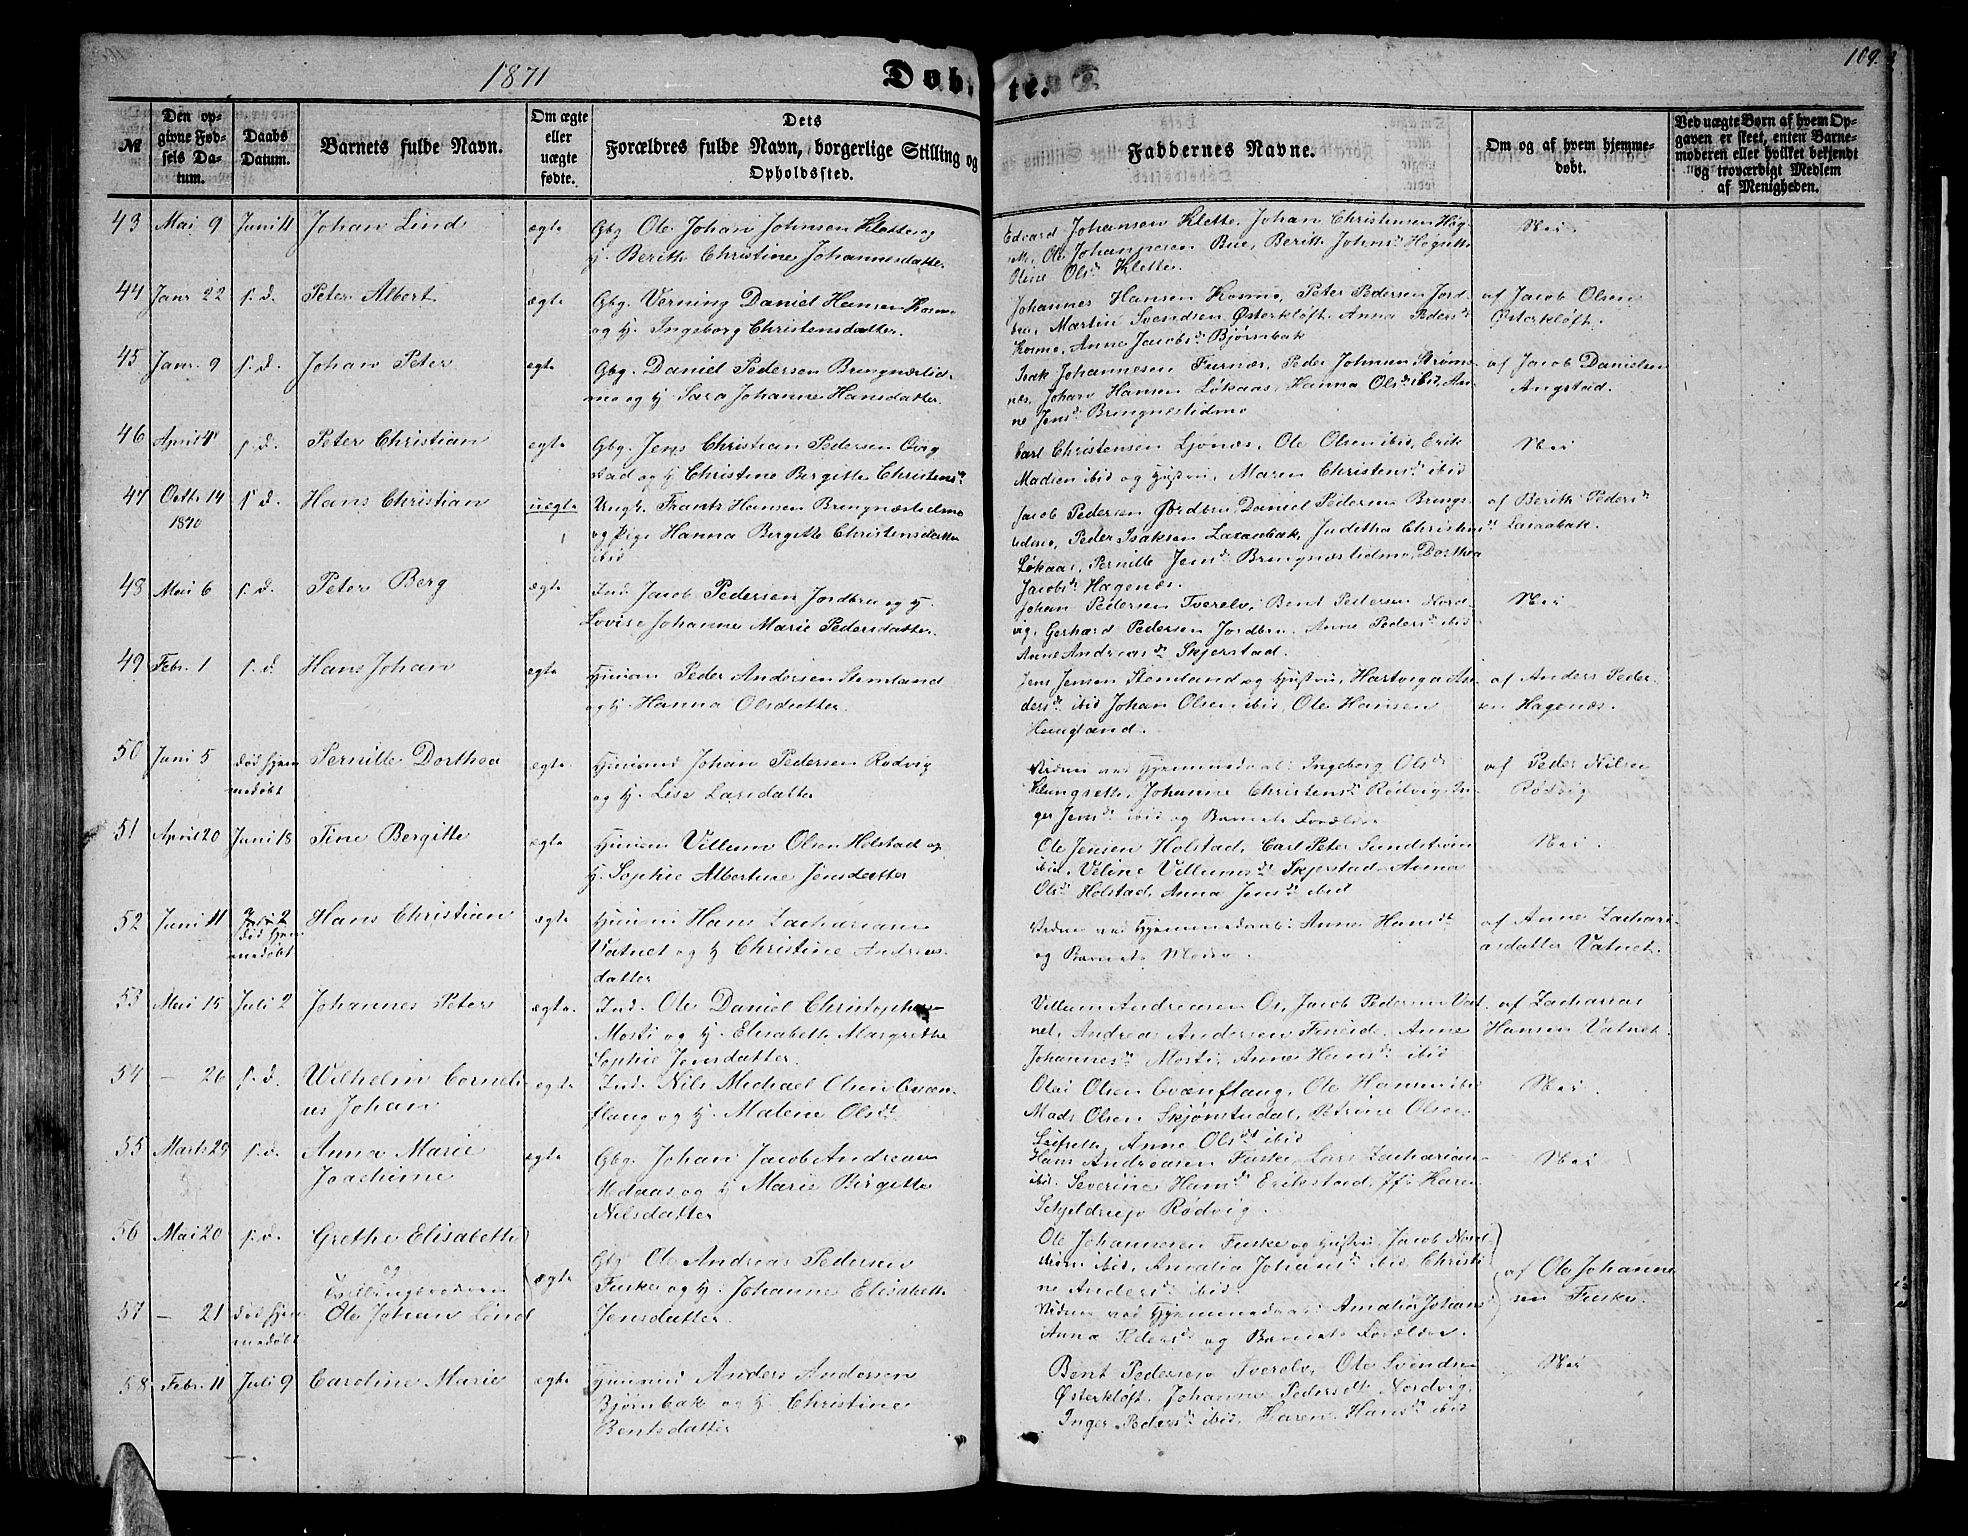 1871
Døbte.
109.
№
Den opgivne Fødsels Datum.
Daabs Datum.
Barnets fulde Navn.
Om ægte eller uægte fødte.
Dets Forældres fulde Navn, borgerlige Stilling og Opholdssted.
Faddernes Navne.
Om og af hvem hjemmedøbt.
Ved uægte Børn af hvem Opgaven er skeet, enten Barnemoderen eller hvilket bekjendt og troværdigt Medlem af Menigheden.
43 Mai 9 Juni 11 Johan Lind ægte Gbg Ole Johan Johnsen Klette og
H. Berith Christine Johannesdatter.
Edvard Johansen Klette, Johan Christensen Høg-
sett, Ole Johannesen Bue, Berith Johnsd. Høgsette
Oline Olsd. Klette.
Nei
44 Janr 22 s. d. Peter Albert ægte Gbg. Verning Daniel Hansen Kosmo
og H. Ingeborg Christensdatter.
Johannes Hansen Kosmo, Peter Pedersen Jord-
bru, Martin Svendsen Østerkløft, Anna Pedersd.
Kosmo, Anne Jacobsd. Bjørnbak
af Jacob Olsen
Østerkløft.
45 Janr. 9 s. d. Johan Peter ægte Gbg. Daniel Pedersen Bringnæslid-
mo og H. Sara Johanne Hansdatter.
Isak Johannesen Furnæs, Peder Johnsen Strøm-
næs, Johan Hansen Løkaas, Hanna Olsd. ibid, An-
ne Jensd. Bringneslidmo
af Jacob Danielsen
Angstad.
46 April 4 s. d. Peter Christian ægte Gbg. Jens Christian Pedersen Qvig
stad og H. Christine Bergitte Christensd.
Carl Christensen Ljønæs, Ole Olsen ibid, Erik
Madsen ibid og Hustru, Maren Christensd. ibid
Nei
47 Octbr 14
1870 s. d. Hans Christian uægte
1
Ungk. Frants Hansen Bringnæslidmo
og Pige Hanna Bergitte Christensdatter
ibid
Jacob Pedersen Jordbru, Daniel Pedersen Brings-
lidmo, Peder Isaksen Laxaabak, Juditha Christensd.
Løkaas, Pernille Jensd. Bringnæslidmo, Dorthea
Jacobsd. Hagenæs.
af Berith Pedersd.
Laxaabak.
48 Mai 6 s. d. Peter Berg ægte Ind. Jacob Pedersen Jordbru og H.
Lovise Johanne Marie Pedersdatter.
Johan Pedersen Tverelv, Bent Pedersen Nord-
vig, Gerhard Pedersen Jordbru, Anne Pedersd. ibid
Anne Andreasd. Skjerstad.
Nei
49 Febr. 1 s. d. Hans Johan ægte Husm. Peder Andersen Stemland
og H. Hanna Olsdatter.
Jens Jensen Stemland og Hustru, Hartviga An-
dersd. ibid Johan Olsen ibid, Ole Hansen
Heugland.
af Anders Peder-
sen Hagenæs.
50 Juni 5 død hjem
medøbt Pernille Dorthea ægte Husmand Johan Pedersen Rødvig
og H. Lise Larsdatter
Vidner ved Hjemmedaab: Ingeborg Olsd.
Klungsette, Johanne Christensd. Rødvig, In-
ger Jensd. ibid og Barnets Forældre
af Peder Nilsen
Rødvig
51 April 20 Juni 18 Tine Bergitte ægte Husm. Villum Olsen Holstad og
H. Sophie Albertine Jensdatter
Ole Jensen Holstad, Carl Peter Sundstrøm
ibid, Veline Villumsd. Skjerstad, Anna
Olsd. Holstad, Anna Jensd. ibid
Nei
52 Juni 11 Juli 2
død hjem
medøbt Hans Christian ægte Husm. Hans Zachariasen
Vatnet og H. Christine Andreas-
datter
Vidner ved Hjemmedaab: Anne Hansd.
og Barnets Moder.
af Anne Zachari-
asdatter Vatnet
53 Mai 15 Juli 2 Johannes Peter ægte. Ind. Ole Daniel Christophersen
Mosti og H. Elisabeth Margrethe
Sophie Jensdatter.
Villum Andreasen Os, Jacob Pedersen Vat-
net, Andrea Andersen Fineid, Anne
Johannesd. Mosti, Anne Hansd. ibid
af Zacharias
Hansen Vatnet.
54 — 26 s. d. Wilhelm Corneli-
us Johan ægte Ind. Nils Michael Olsen Evæn-
flaug og H. Malene Olsd.
Olai Olsen Evænflaug, Ole Hansen ibid
Mads Olsen Skjønstadal, Petrine Olsen
Leifsette, Anne Olsd. ibid
Nei
55 Marts 29 s. d. Anna Marie
Joachime ægte Gbg. Johan Jacob Andreasen
Medaas og H. Marie Birgitte
Nilsdatter
Hans Andreasen Fuske, Lars Zachariasen
ibid. Severine Hansd. Erikstad, Jfr. Karen
Schjeldrup Rødvig.
Nei
56 Mai 20 s. d. Grethe Elisabeth
og
Tvillingbroderen
ægte Gbg Ole Andreas Pedersen
Fuske og H. Johanne Elisabeth
Jensdatter.
Ole Johannesen Fuske og Hustru, Jacob Nord-
strøm ibid, Amalia Johansd. ibid, Christi
ne Andersd. ibid.
af Ole Johanne
sen Fuske.
57 — 21 død hjem
medøbt Ole Johan Lind
Vidner ved Hjemmedaab: Amalia Johansd.
Anna Pedersd. og Barnets Forældre.
58 Febr. 11 Juli 9 Caroline Marie ægte Husmd Anders Andersen
Bjørnbak og H. Christine
Bentsdatter
Bent Pedersen Tverelv, Ole Svendsen
Østerkløft, Johanne Pedersdt. Nordvig,
Inger Pedersd. ibid, Karen Hansd. ibid
Nei